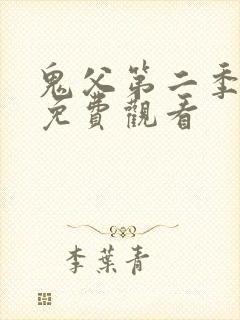 鬼父第二季
免費觀看
李葉青